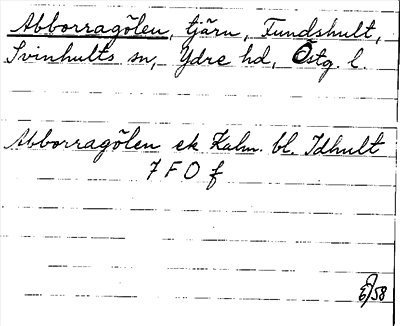 Abborragölen, tjärn, Fundshult,
Svinhults sn, Ydre hd, Östg. l.
Abborragölen ek Kalm. bl. Idhult
7 F O f
58